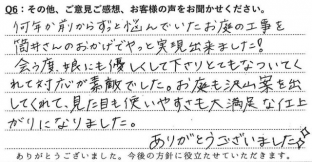 Q6：その他、ご意見ご感想、お客様の声をお聞かせください。
何年か前からずっと悩んでいたお庭の工事を
筒井さんのおかげでやっと実現出来ました!
会う度、娘にも優しくして下さりとてもなついてく
れて対応が素敵でした。お庭も沢山案を出
してくれて、見た目も使いやすさも大満足な仕上
がりになりました。
ありがとうございました☆
ありがとうございました。今後の方針に役立たせていただきます。